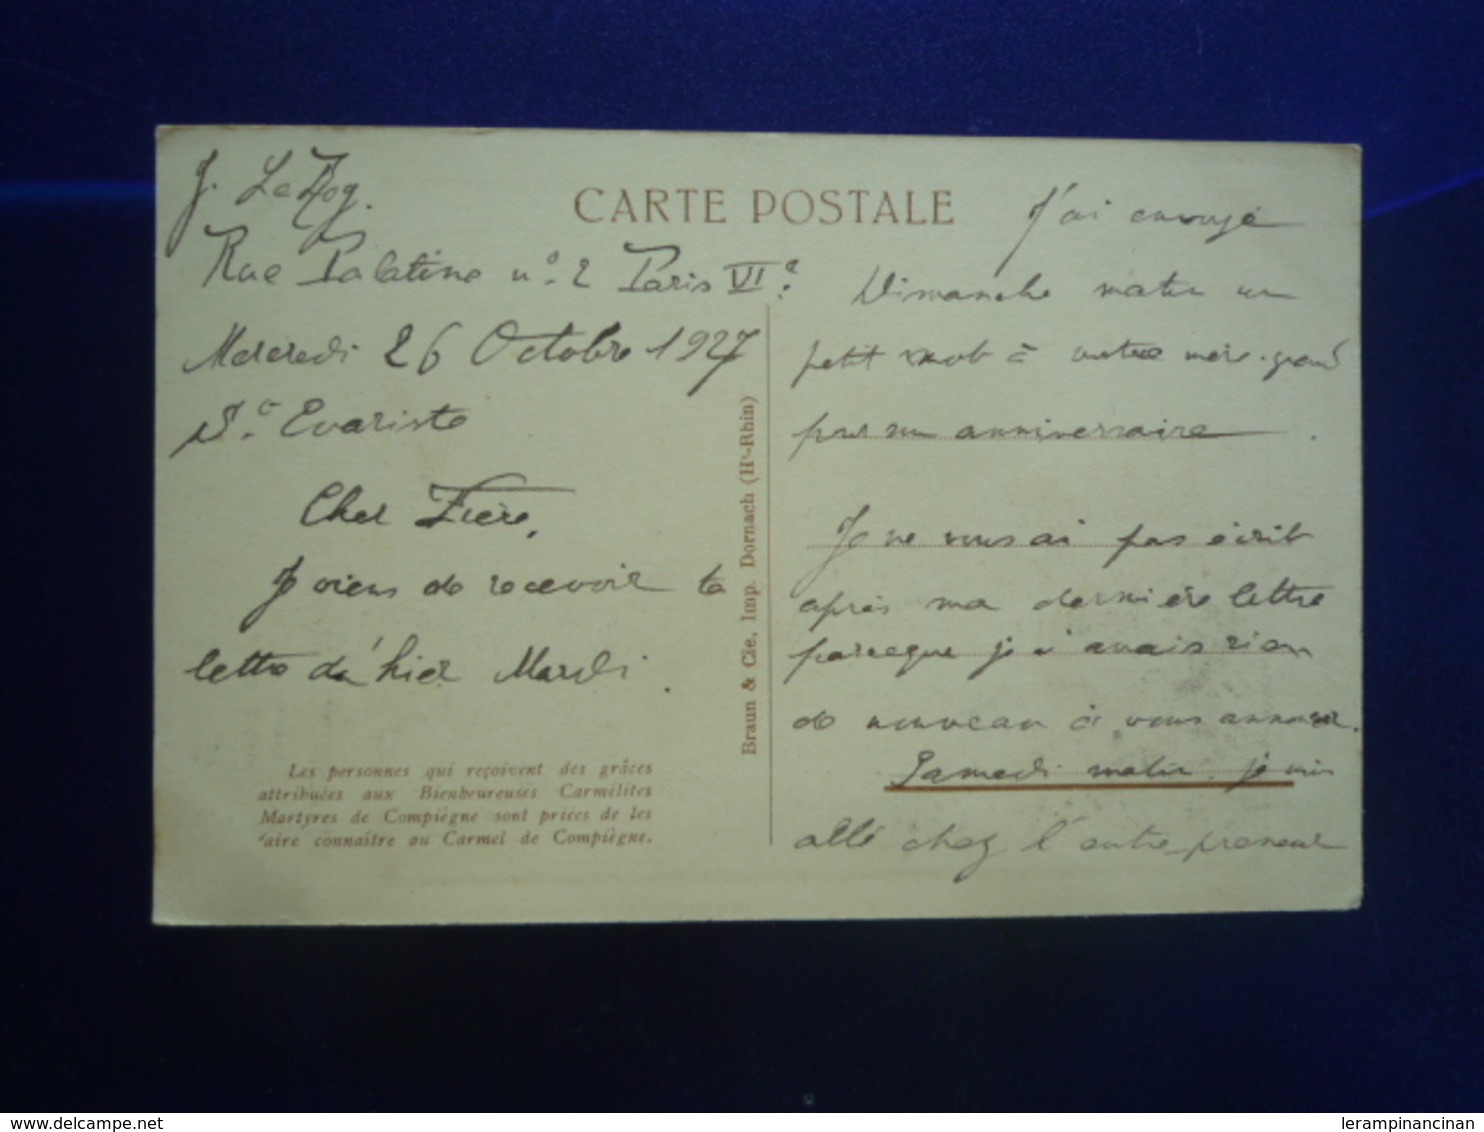 J. Le
Rue Palatine n° 2 Paris VIe
Mercredi 26 Octobre 1927
St. Evariste
Cher Frère,
Je viens de recevoir ta
lettre d'hier Mardi.
Les personnes qui reçoivent des grâces
attribuées aux Bienheureuses Carmélites
Martyres de Compiègne sont priées de les
faire connaître au Carmel de Compiègne.
Braun & Cie, Imp. Dornach (Ht-Rhin)
CARTE POSTALE
J'ai envoyé
Dimanche matin un
petit mot à notre mère-grand
pour son anniversaire.
Je ne vous ai pas écrit
après ma dernière lettre
parceque je n'avais rien
de nouveau à vous annoncer.
Samedi matin je suis
allé chez l'entrepreneur
www.delcampe.net
lerampinancinan